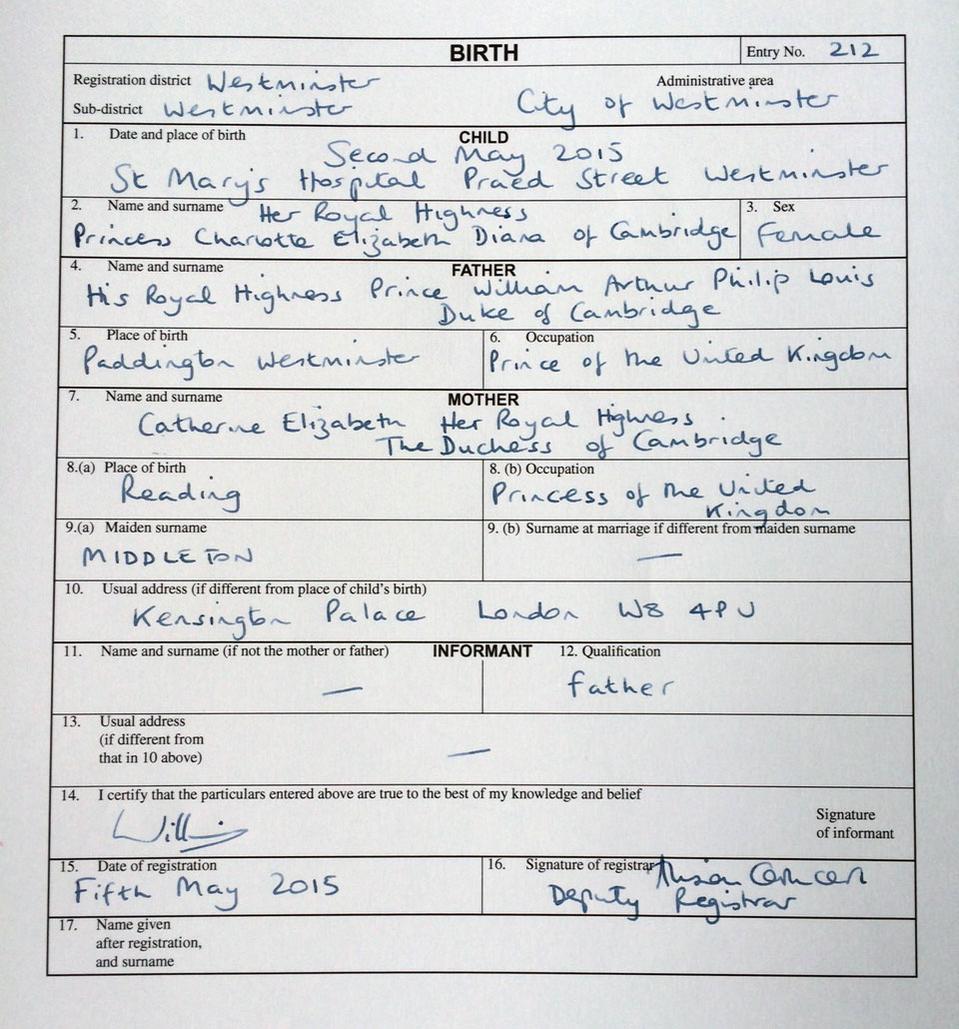 BIRTH
Entry No. 212
Registration district Westminster
Administrative area
Sub-district Westminster
City of Westminster
1. Date and place of birth
CHILD
Second May 2015
St Mary's Hospital Praed Street Westminster
2. Name and surname
Her Royal Highness
Princess Charlotte Elizabeth Diana of Cambridge
3. Sex
Female
4. Name and surname
FATHER
His Royal Highness Prince William Arthur Philip Louis
Duke of Cambridge
5. Place of birth
Paddington Westminster
6. Occupation
Prince of the United Kingdom
7. Name and surname
MOTHER
Catherine Elizabeth Her Royal Highness
The Duchess of Cambridge
8.(a) Place of birth
Reading
8. (b) Occupation
Princess of the United
Kingdom
9.(a) Maiden surname
MIDDLETON
9. (b) Surname at marriage if different from maiden surname
—
10. Usual address (if different from place of child's birth)
Kensington Palace London W8 4PU
11. Name and surname (if not the mother or father)
INFORMANT
—
12. Qualification
Father
13. Usual address
(if different from
that in 10 above)
—
14. I certify that the particulars entered above are true to the best of my knowledge and belief
Signature
of informant
15. Date of registration
Fifth May 2015
16. Signature of registrar
Deputy Registrar
17. Name given
after registration,
and surname